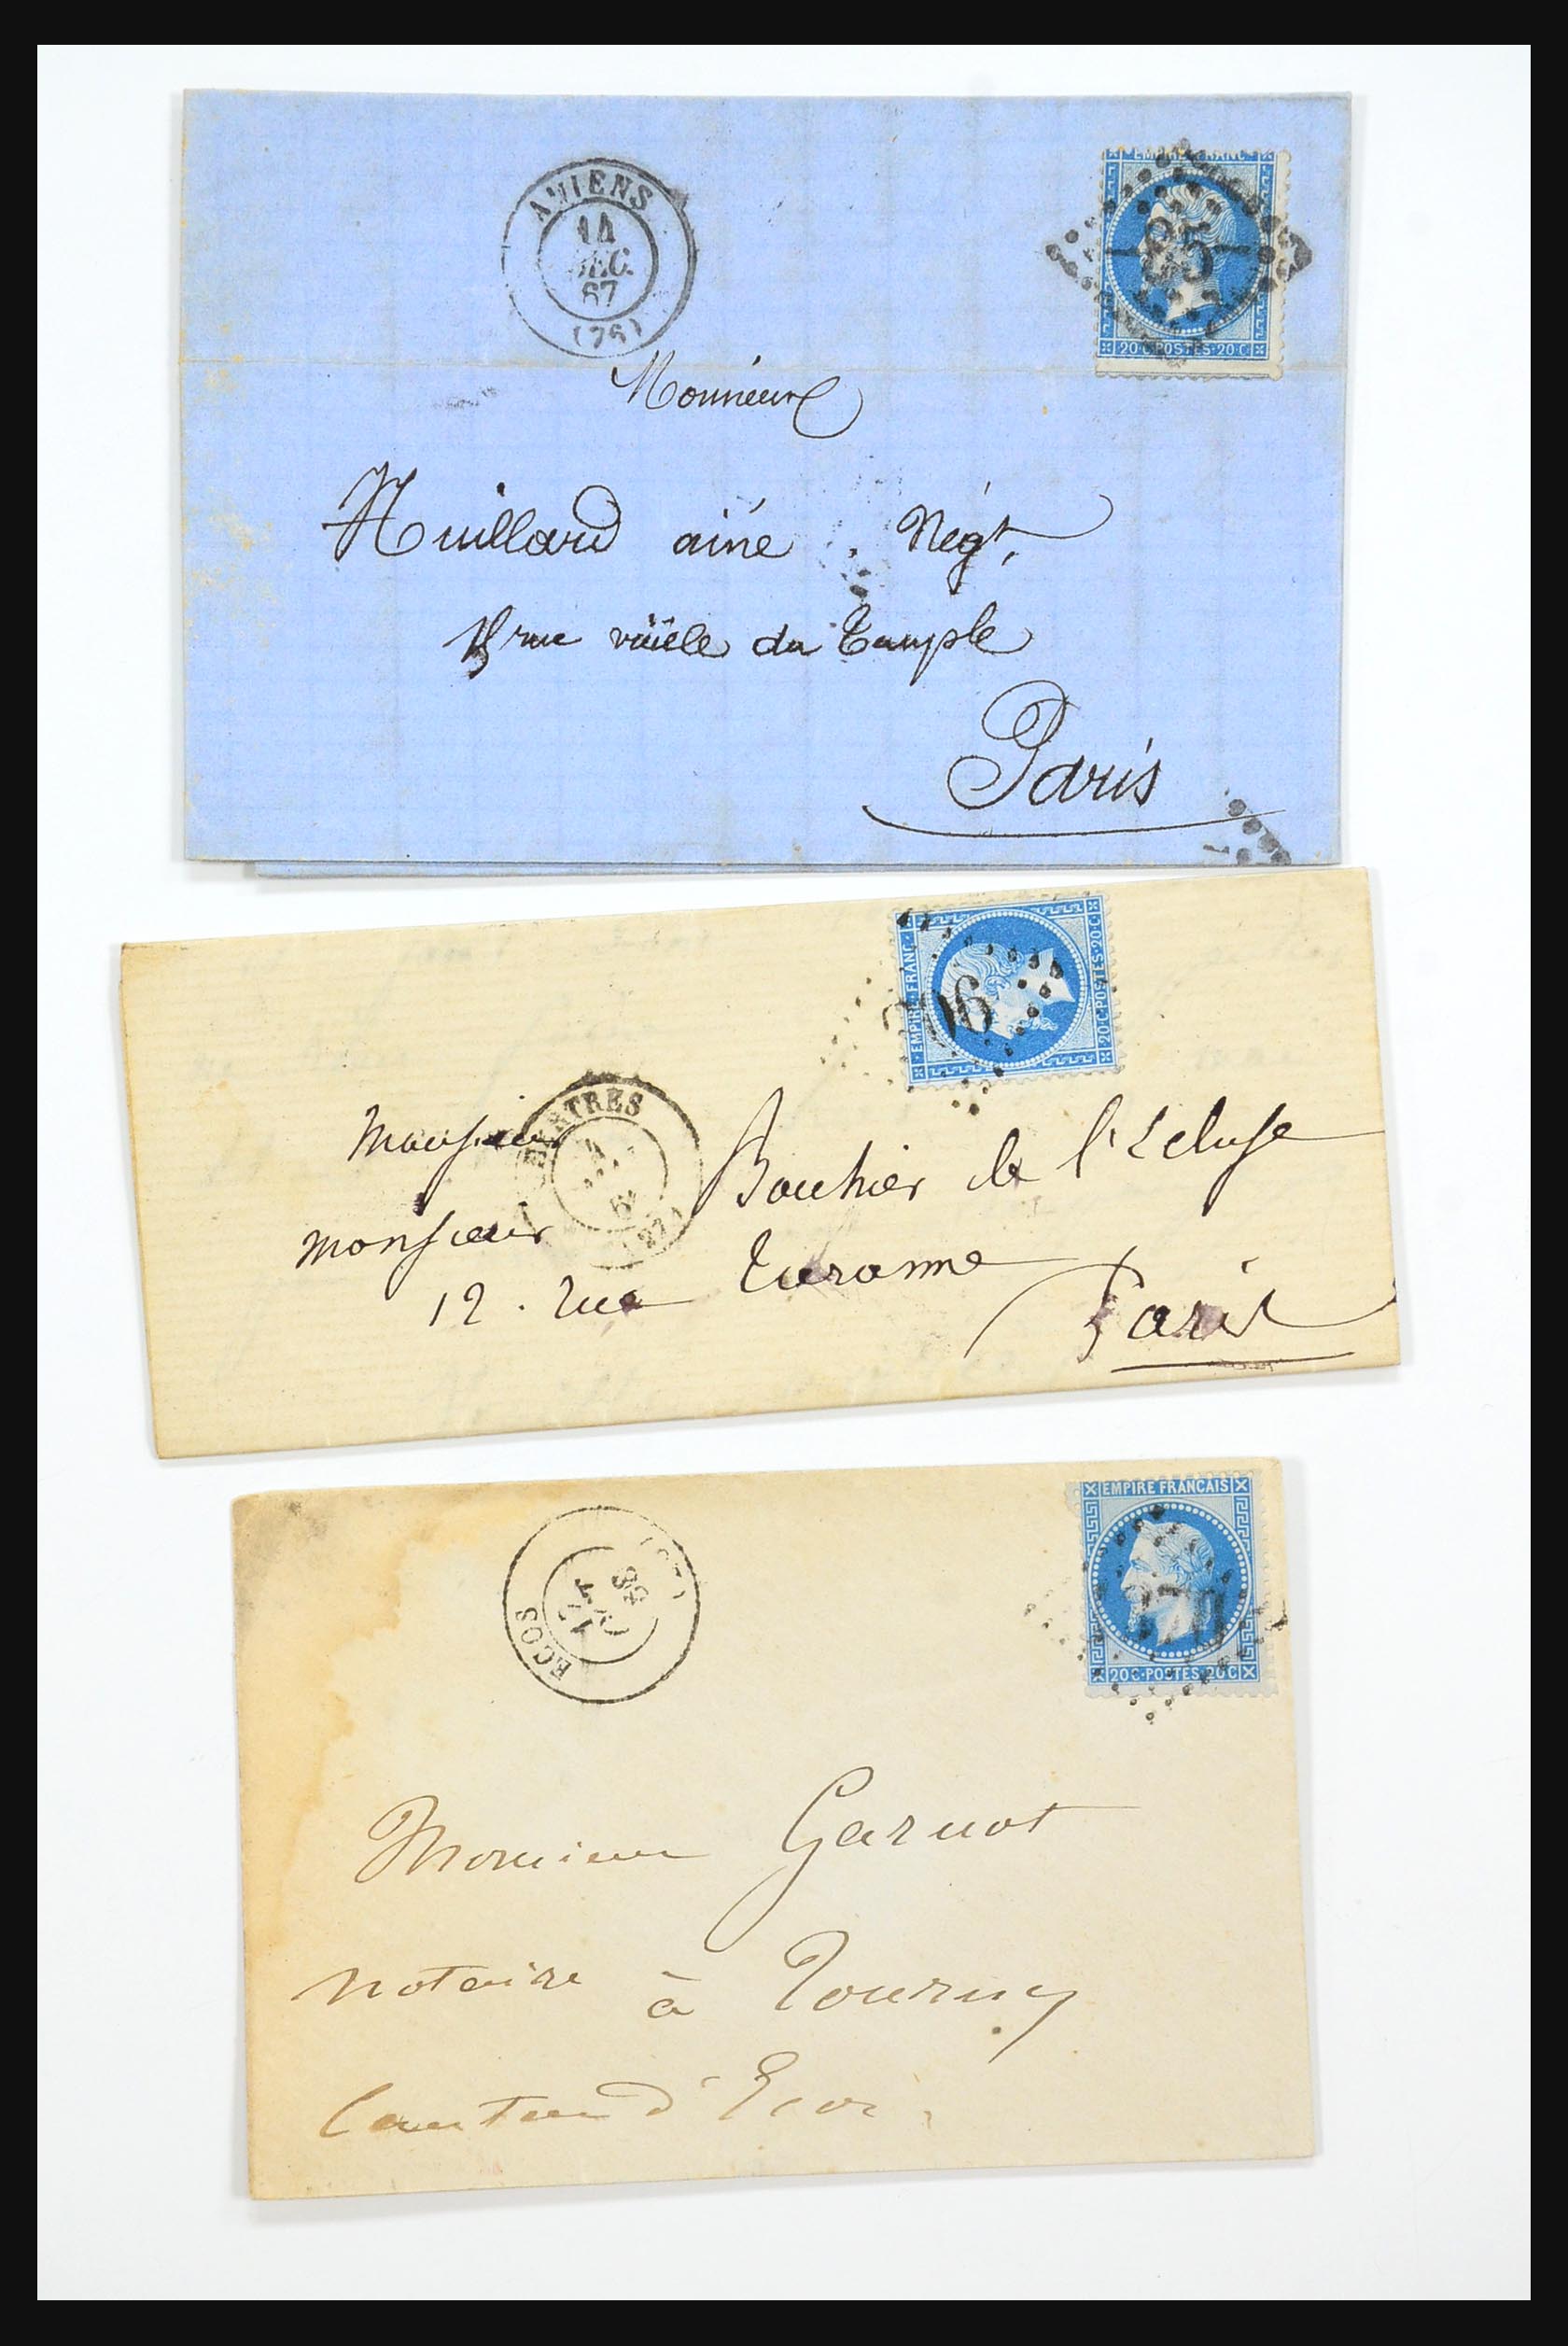 AMIENS
14
DEC.
67
(76)
EMPIRE FRANC
85
20·C·POSTES·20·C
Monsieur
Huillard ainé. Négt.
15 rue vieille du Temple
Paris
EMPIRE FRANC
20·C·POSTES·20·C
06
Monsieur
Monsieur Bouhier de l'Ecluse
12. rue Turenne
Paris
EMPIRE FRANÇAIS
20C·POSTES·20C
ECOS
Monsieur Garnot
Notaire à Tourny
Canton d'Ecos.